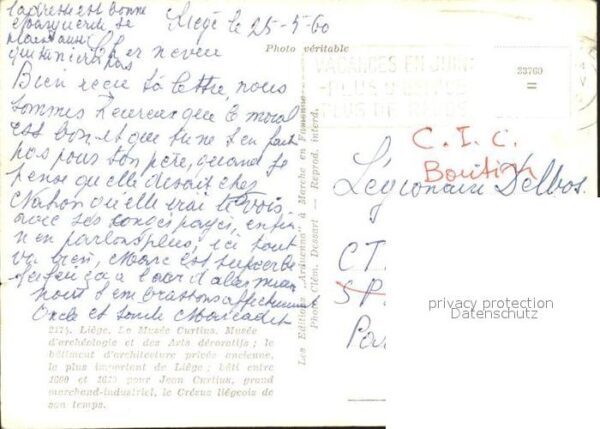 l'adresse est bonne
Marguerite se
Liège le 25-5-60
Cher neveu
Photo véritable
Bien reçu ta lettre, nous
sommes heureux que le moral
est bon et que tu ne t'en fait
pas pour ton père, quand je
pense qu'elle disait chez
Nahon qu'elle irai te voir
avec ses congés payés, enfin
n'en parlons plus, ici tout
va bien, Marc est superbe
nous t'embrassons affectueusement
Oncle et tante
217). Liége. Le Musée Curtius. Musée
d'archéologie et des Arts décoratifs ; le
bâtiment d'architecture privée ancienne,
le plus important de Liége ; bâti entre
1600 et 1625 pour Jean Curtius, grand
marchand-industriel, le Crésus liégeois de
son temps.
Les Editions "Arduenna" à Marche en Famenne
Photo Clém. Dessart — Reprod. interd.
VACANCES EN JUIN
-PLUS D'ESPACE
-PLUS DE REPOS
33760
C. I. C.
Légionnaire Delbos
CT.
SP.
privacy protection
Datenschutz